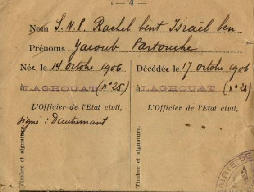 — 4 —
Nom S.N.P. Rachel bent Israïl ben
Prénoms Yacoub Partouche
Né le 14 Octobre 1906 Décédé le 17 octobre 1906
à LAGHOUAT (n° 25) à LAGHOUAT (n° 24)
L'Officier de l'Etat civil, L'Officier de l'Etat civil,
signé : Dieulemant
Timbre et signature. Timbre et signature.